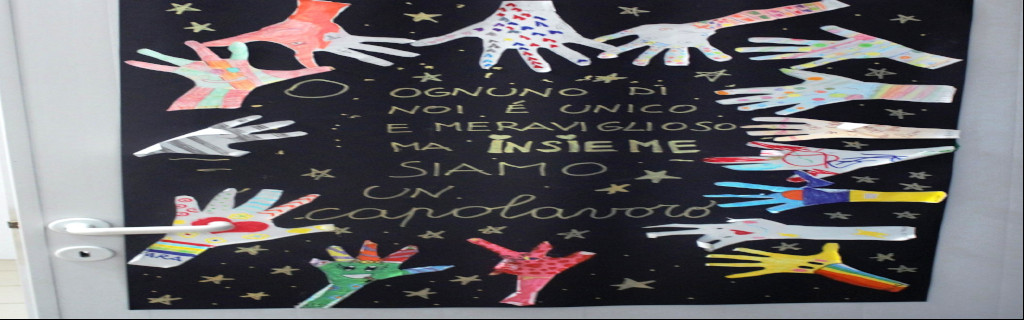 OGNUNO DI
NOI É UNICO
E MERAVIGLIOSO
MA INSIEME
SIAMO
UN
capolavoro
ARA